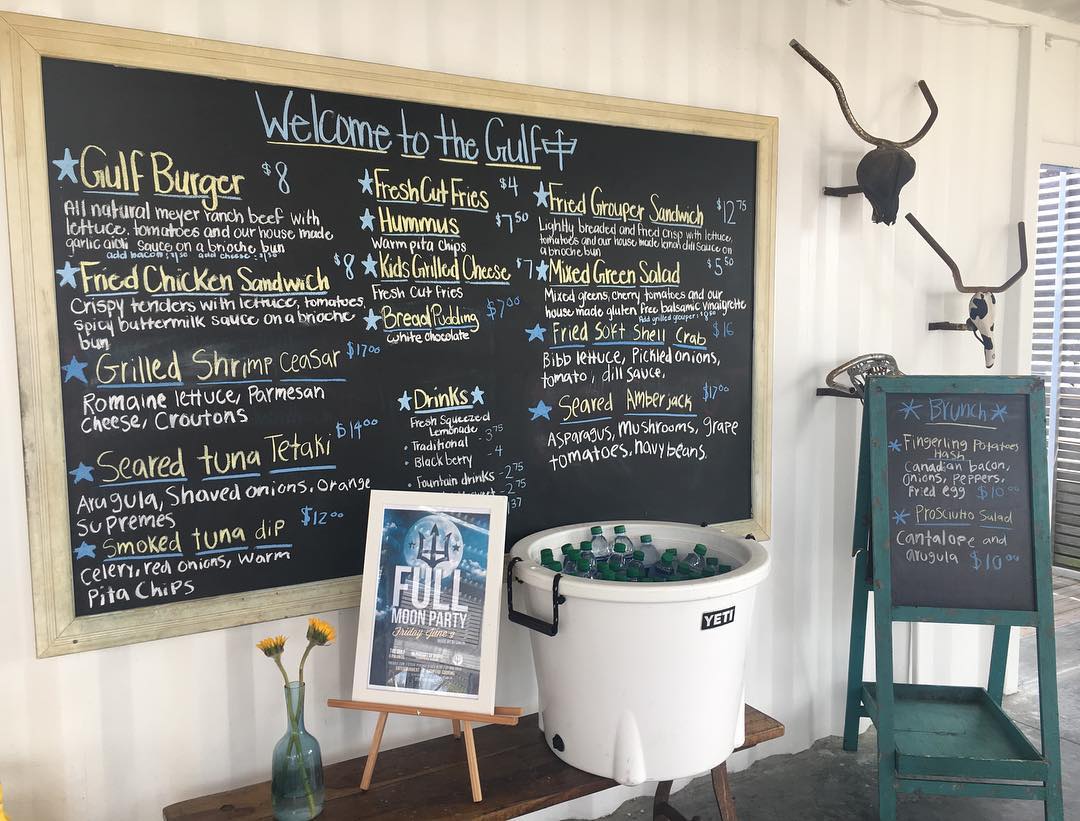 Welcome to the Gulf
Gulf Burger $8
All natural meyer ranch beef with
lettuce, tomatoes and our house made
garlic aioli sauce on a brioche bun
add bacon: 1.50 add cheese: 1.50
Fried Chicken Sandwich $8
Crispy tenders with lettuce, tomatoes,
spicy buttermilk sauce on a brioche
bun
Grilled Shrimp Ceasar $17.00
Romaine lettuce, Parmesan
Cheese, Croutons
Seared tuna Tetaki $14.00
Arugula, Shaved onions, Orange
Supremes
Smoked tuna dip $12.00
Celery, red onions, Warm
Pita Chips
Fresh Cut Fries $4
Hummus $7.50
Warm pita chips
Kids Grilled Cheese $7
Fresh Cut Fries
Bread Pudding $7.00
White chocolate
Drinks
Fresh Squeezed
Lemonade
• Traditional - 3.75
• Blackberry - 4
• Fountain drinks - 2.75
- 2.75
Fried Grouper Sandwich $12.75
Lightly breaded and fried crisp with lettuce,
tomatoes and our house made lemon dill sauce on
a brioche bun
Mixed Green Salad $5.50
Mixed greens, cherry tomatoes and our
house made gluten free balsamic vinaigrette
Add grilled grouper:
Fried Soft Shell Crab $16
Bibb lettuce, Pickled onions,
tomato, dill sauce,
Seared Amberjack $17.00
Asparagus, mushrooms, grape
tomatoes, navy beans.
FULL
MOON PARTY
Friday June 9
YETI
Brunch
Fingerling Potatoes
Hash
Canadian bacon,
onions, Peppers,
Fried egg $10.00
Prosciutto Salad
Cantalope and
arugula $10.00